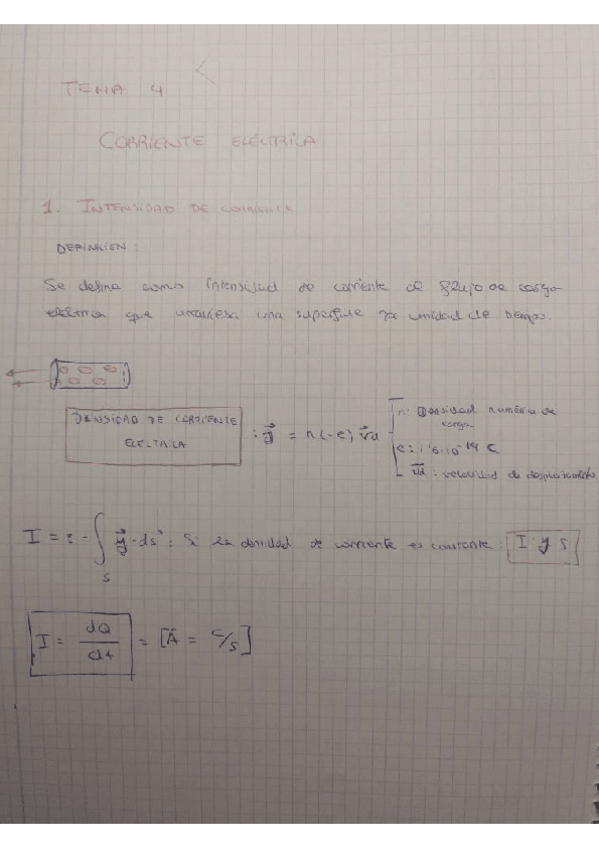 TEMA 4
CORRIENTE ELÉCTRICA
1. INTENSIDAD DE CORRIENTE
DEFINICIÓN :
Se define como intensidad de corriente el flujo de carga
eléctrica que atraviesa una superficie por unidad de tiempo.
DENSIDAD DE CORRIENTE
ELÉCTRICA
: J⃗ = n(-e) v⃗d
n: Densidad numérica de
carga
e: 1'6·10⁻¹⁹ C
v⃗d : velocidad de desplazamiento
I = ∫ J⃗ · ds⃗ : Si la densidad de corriente es constante : I = J S
S
I = dQ/dt = [A = C/s]